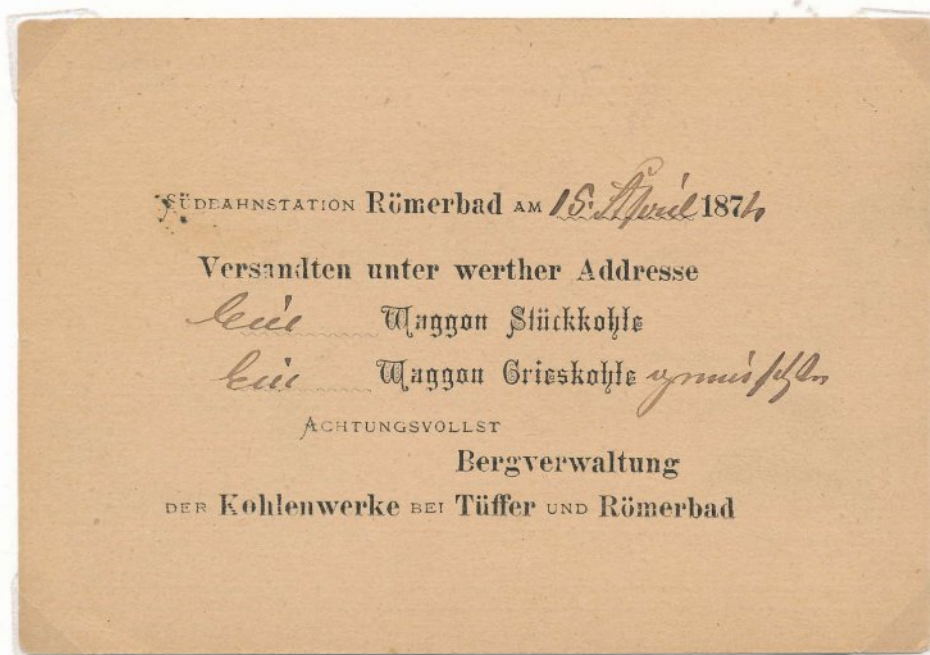 SÜDBAHNSTATION Römerbad AM 15. April 187
Versandten unter werther Addresse
Waggon Stückkohle
Ein Waggon Grieskohle
ACHTUNGSVOLLST
Bergverwaltung
DER Kohlenwerke BEI Tüffer UND Römerbad